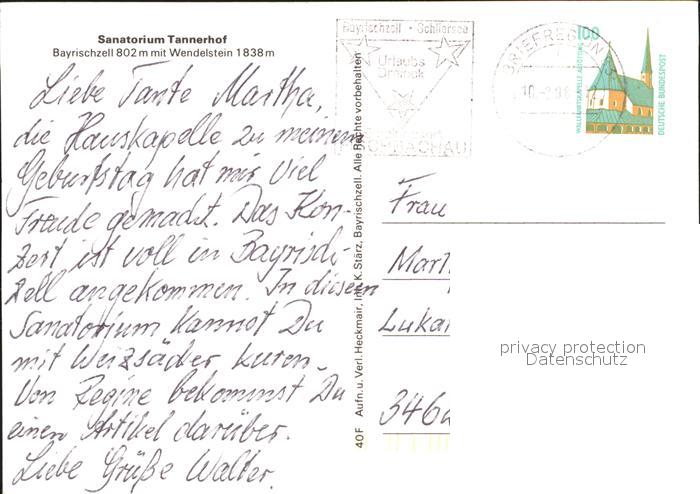 Sanatorium Tannerhof
Bayrischzell 802 m mit Wendelstein 1838 m
Liebe Tante Martha,
die Hauskapelle zu meinem
Geburtstag hat mir viel
Freude gemacht. Das Kon-
zert ist voll in Bayrisch-
zell angekommen. In diesem
Sanatorium kannst Du
mit Weizsäcker kuren.
Von Regine bekommst Du
einen Artikel darüber.
Liebe Grüße Walter.
40 F Aufn. u. Verl. Heckmair, Inh. K. Stärz, Bayrischzell. Alle Rechte vorbehalten
Bayrischzell · Schliersee
Urlaubs
Dreieck
BRIEFREGION
100
WALLFAHRTSKAPELLE ALTÖTTING
DEUTSCHE BUNDESPOST
Frau
Mart
Luka
346
privacy protection
Datenschutz